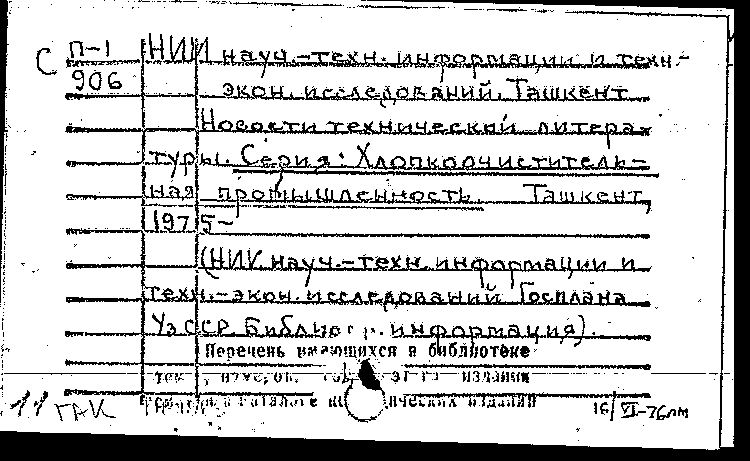 С П-1 НИИ науч.-техн. информации и техн.-
906 экон. исследований. Ташкент
Новости технической литера
туры. Серия: Хлопкоочиститель-
ная промышленность. Ташкент,
1975-
(НИИ науч.-техн. информации и
техн.-экон. исследований Госплана
УзССР. Библиогр. информация).
Перечень имеющихся в библиотеке
издания
каталоге изданий
11 ГАК 16/VI-76лм